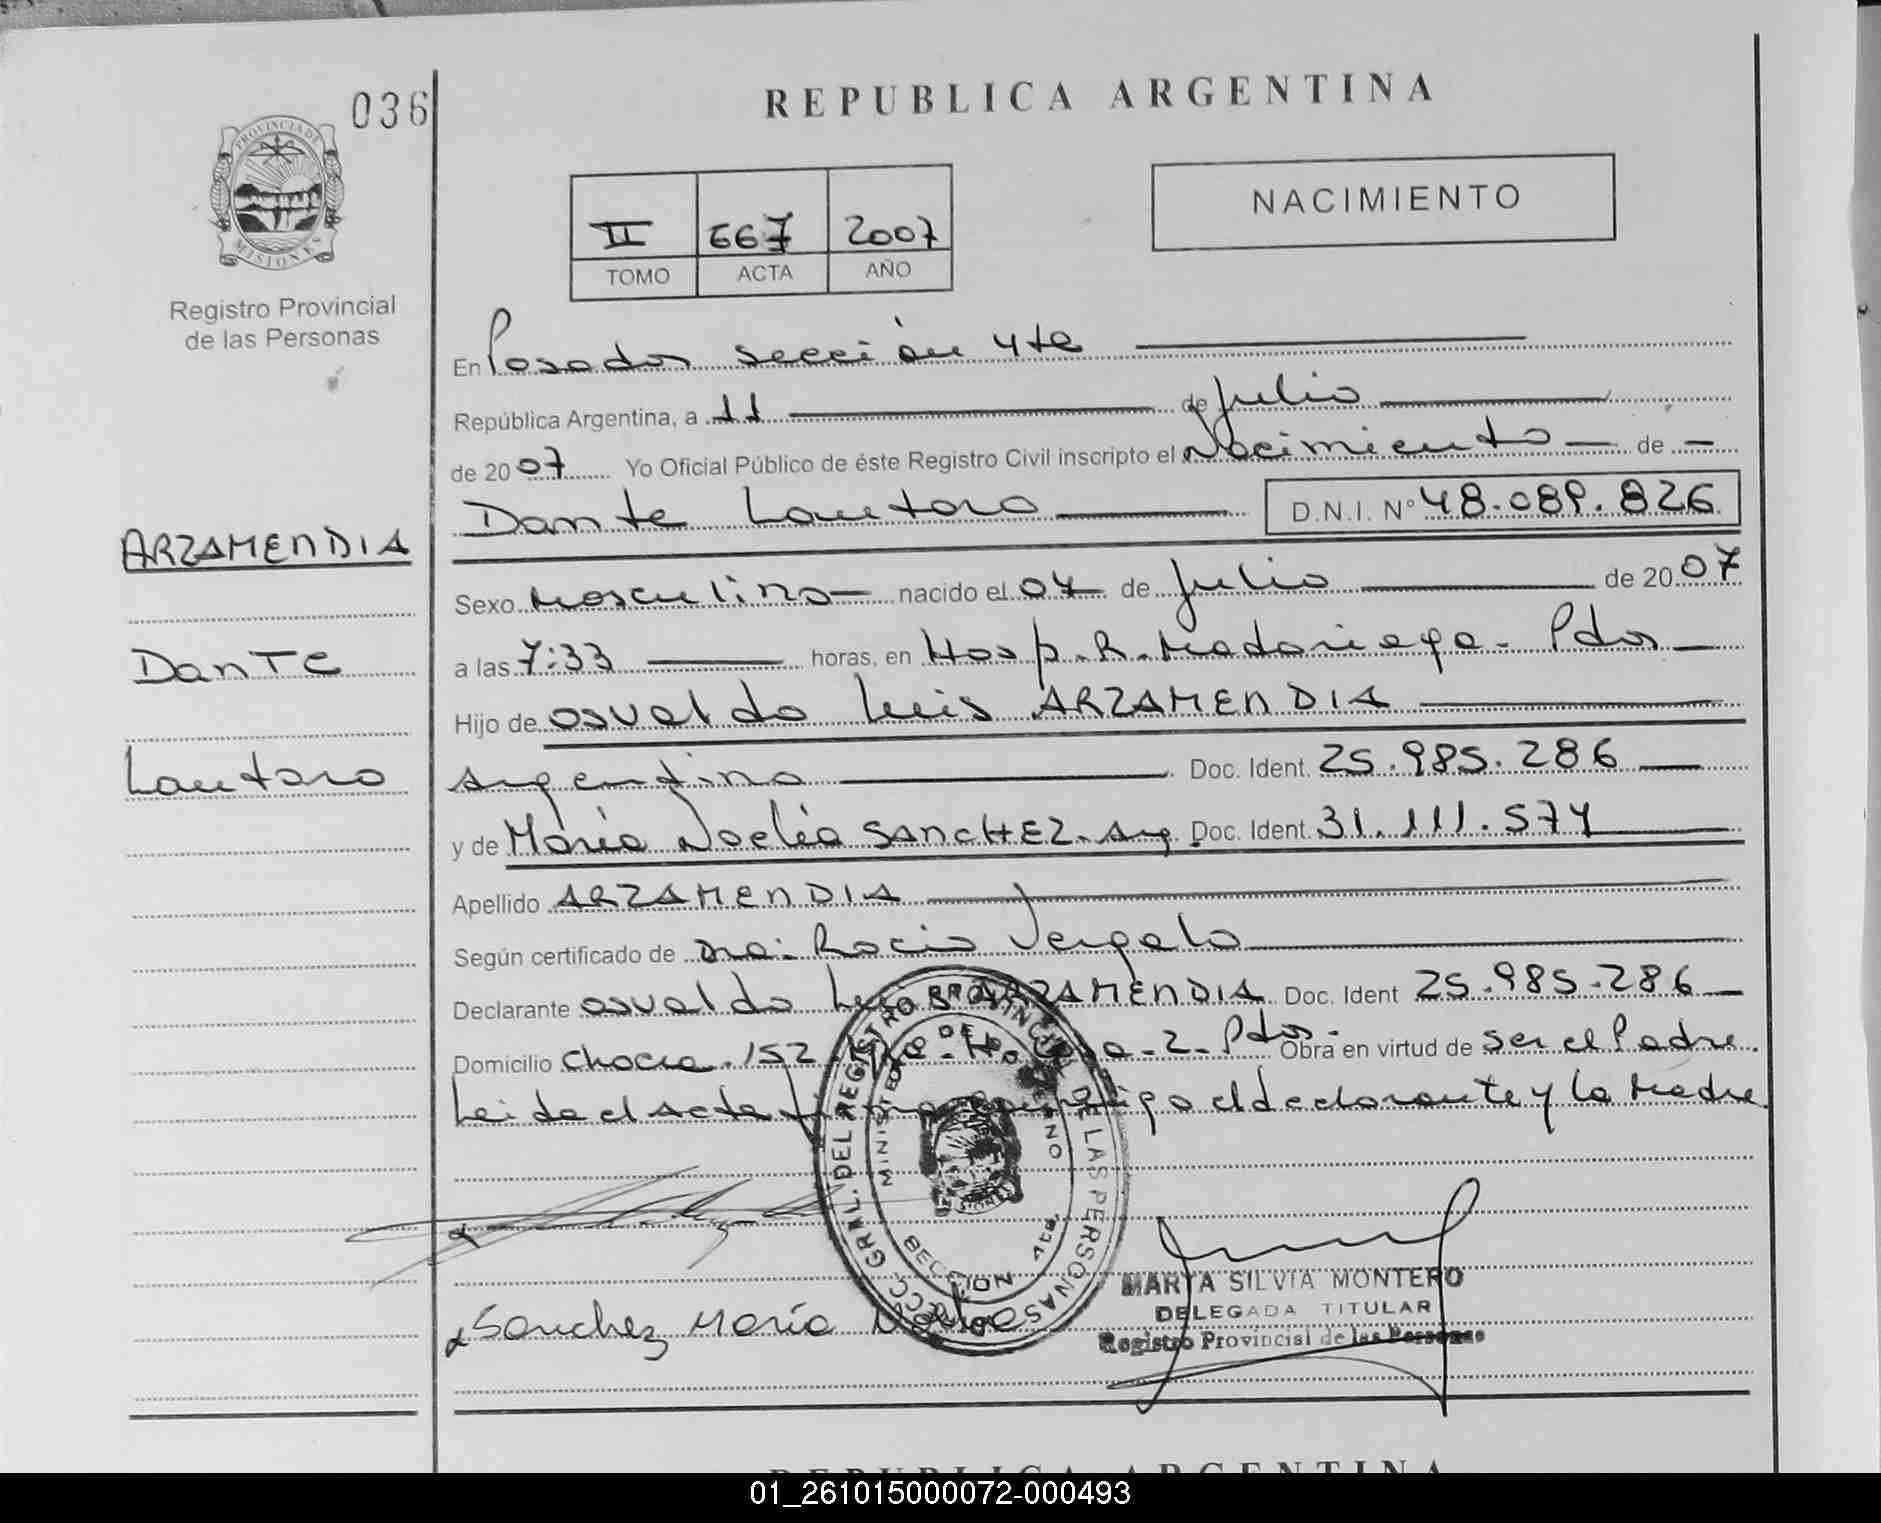 036
PROVINCIA DE
MISIONES
Registro Provincial
de las Personas
ARZAMENDIA
Dante
Lautaro
REPUBLICA ARGENTINA
II 667 2007
TOMO ACTA AÑO
NACIMIENTO
En Posadas sección 4ta
República Argentina, a 11 de Julio
de 2007 Yo Oficial Público de éste Registro Civil inscripto el Nacimiento de
Dante Lautaro D.N.I. N° 48.089.826
Sexo Masculino nacido el 04 de Julio de 2007
a las 7:33 horas, en Hosp. R. Madariaga - Pdas
Hijo de Osvaldo Luis ARZAMENDIA
Argentino Doc. Ident. 25.985.286
y de María Noelia SANCHEZ - Arg. Doc. Ident. 31.111.574
Apellido ARZAMENDIA
Según certificado de Dra. Rocio Vergara
Declarante Osvaldo Luis ARZAMENDIA Doc. Ident 25.985.286
Domicilio Chacra. 152 - 2 - Pdas - Obra en virtud de ser el Padre.
Leida el Acta el declarante y la Madre.
DEL REGISTRO PROVINCIAL DE LAS PERSONAS
SECCION 4ta.
MARTA SILVIA MONTERO
DELEGADA TITULAR
Registro Provincial de las Personas
Sanchez María Noelia
REPUBLICA ARGENTINA
01_261015000072-000493